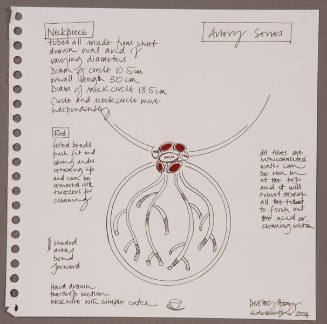 NECKPIECE
Artery Series
tubes all made from sheet
drawn oval and of
varying diameters
Diam of circle 10.5cm
overall length 30cm
Diam of neck circle 13.5cm
Circle and neck circle move
independently
Red
felted beads
push fit and
string under
and can be
removed with
tweezers for
cleaning
All tubes are
interconnected
water can
be run in
at the top
and it will
travel through
all the tubes
to flush out
the acid or
cleaning solution
shaded
areas
bend
forward
Hand drawn
section
neckwire with simple catch
2004